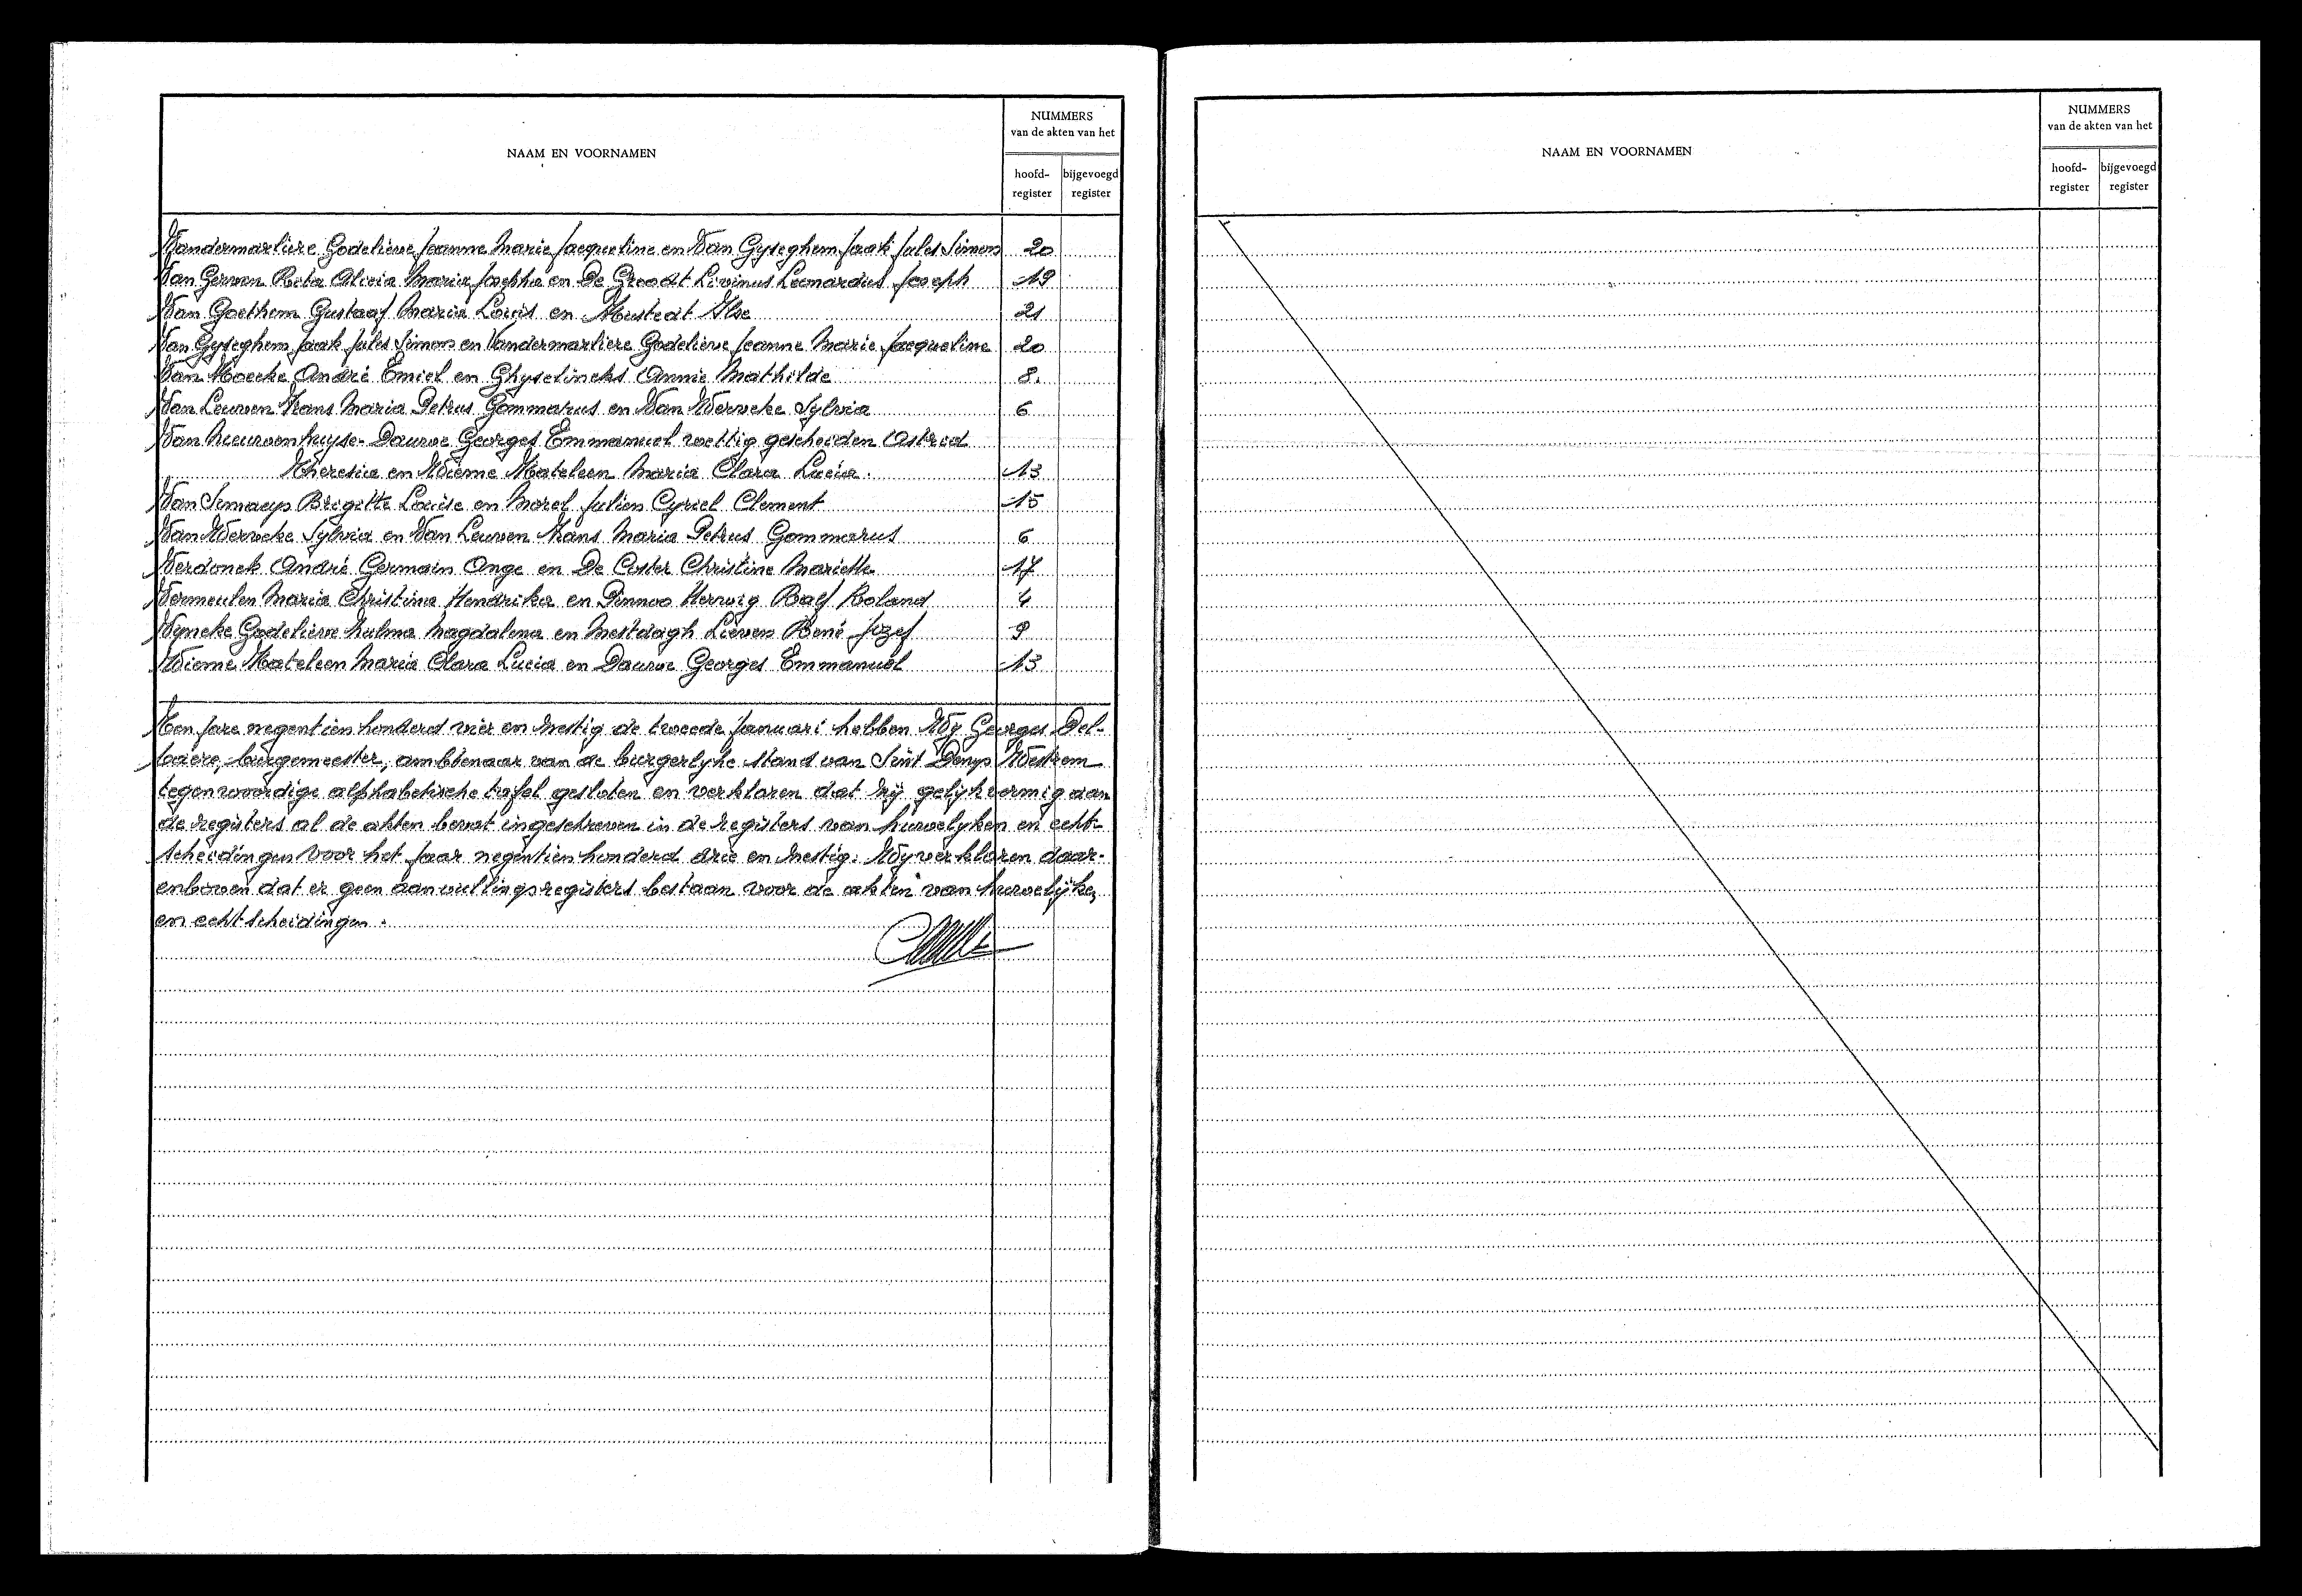 NAAM EN VOORNAMEN
NUMMERS
van de akten van het
hoofd-
register
bijgevoegd
register
Vandermarliere Godelieve Jeanne Marie Jacqueline en Van Gyseghem Jaak Jules Simon 20
Van Gerven Rita Alicia Maria Josepha en De Groodt Livinus Leonardus Joseph 19
Van Goethem Gustaaf Maria Louis en Ilse 21
Van Gyseghem Jaak Jules Simon en Vandermarliere Godelieve Jeanne Marie Jacqueline 20
Van Hoecke André Emiel en Ghyselincks Annie Mathilde 8.
Van Leuven Frans Maria Petrus Gommarus en Van Werveke Sylvia 6
Van Nieuwenhuyse - Dauwe Georges Emmanuel wettig gescheiden Astrid
Theresia en Wieme Kateleen Maria Clara Lucia. 13
Van Simaeys Brigitte Louise en Morel Julien Cyriel Clement 15
Van Werveke Sylvia en Van Leuven Frans Maria Petrus Gommarus 6
Verdonck André Germain Ange en De Coster Christine Mariette 17
Vermeulen Maria Christina Hendrika en Pinnoo Herwig Ralf Roland 4
Vyncke Godelieve Hulma Magdalena en Mestdagh Lieven René Jozef 9
Wieme Kateleen Maria Clara Lucia en Dauwe Georges Emmanuel 13
Ten jare negentien honderd vier en zestig de tweede januari hebben Wy Georges Del-
baere, burgemeester, ambtenaar van de burgerlyke stand van Sint Denys Westrem
tegenwoordige alphabetische tafel gesloten en verklaren dat zij gelijkvormig aan
de registers al de akten bevat ingeschreven in de registers van huwelyken en echt-
scheidingen voor het jaar negentien honderd drie en zestig. Wy verklaren daar-
enboven dat er geen aanvullingsregisters bestaan voor de akten van huwelijken
en echtscheidingen.
NAAM EN VOORNAMEN
NUMMERS
van de akten van het
hoofd-
register
bijgevoegd
register